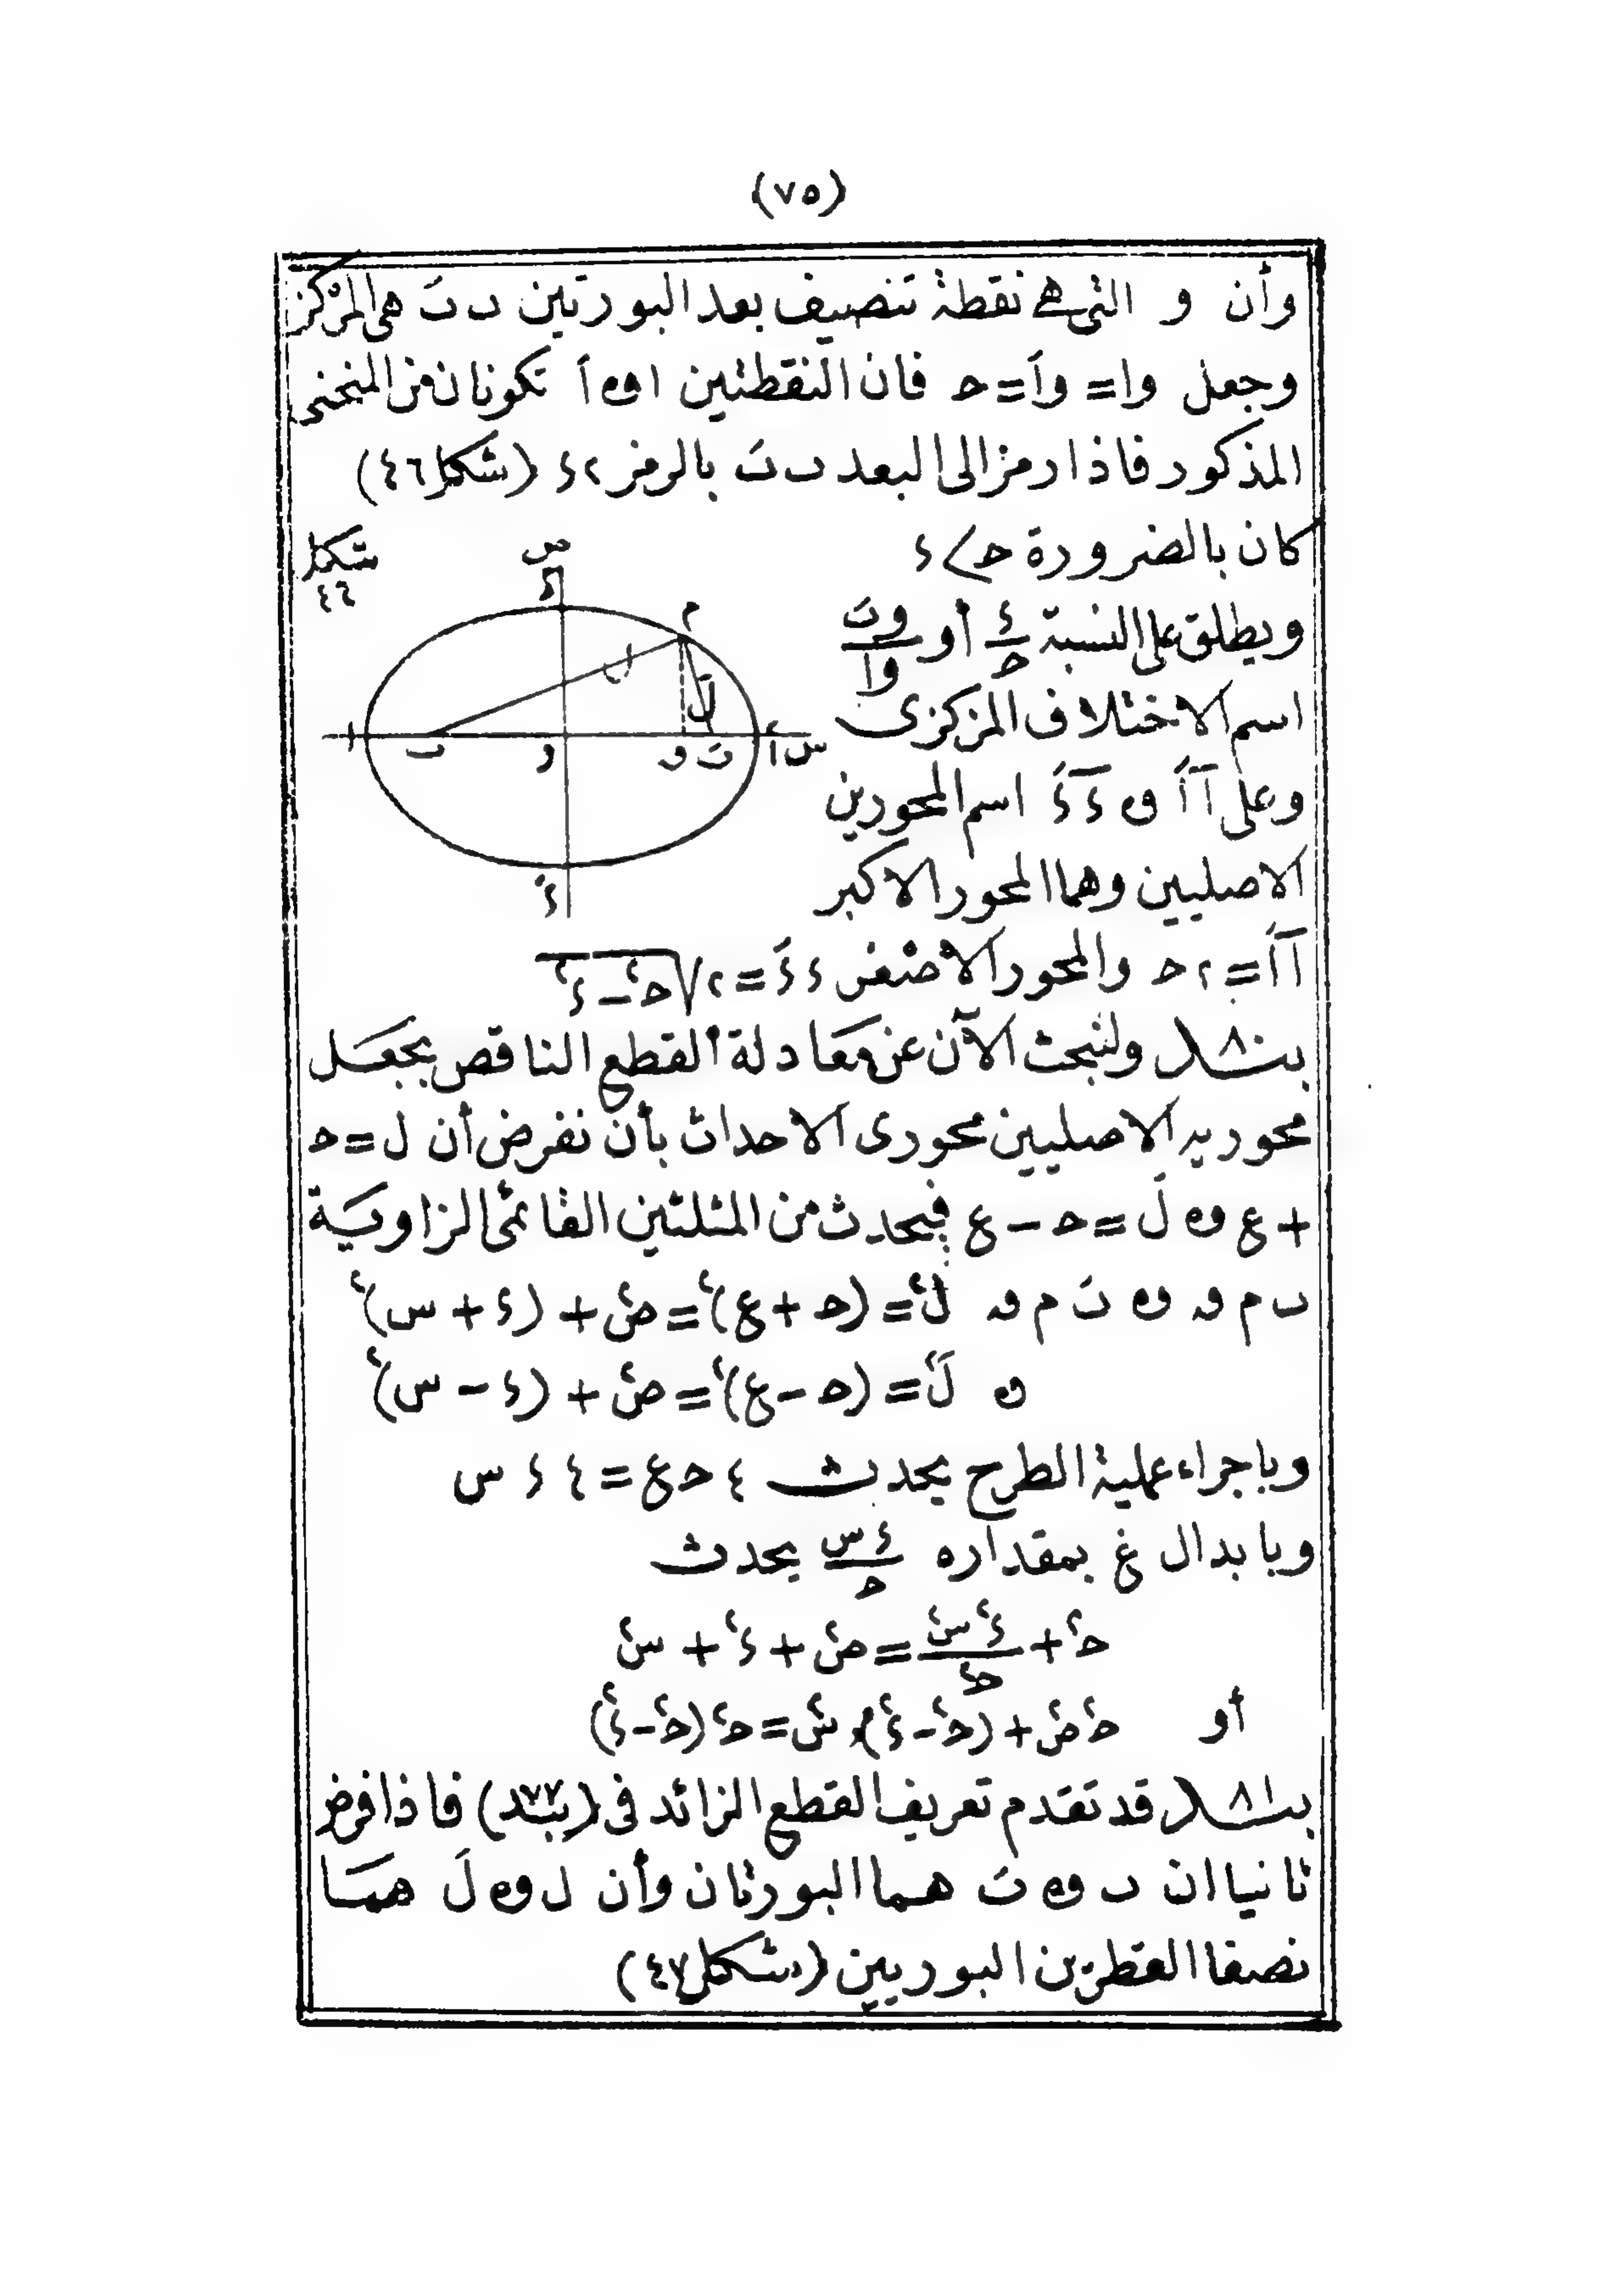 (٧٥)
وأن و التى هى نقطة تنصيف بعد البورتين ں ںَ هى المركز
وجعل وا = واَ = حـ فان النقطتين ا و اَ تكونان من المنحنى
المذكور فاذا رمز الى البعد ں ںَ بالرمز ٢ء (شكل ٤٦)
كان بالضرورة حـ > ء
شكل
٤٦
ص
ءَ
م
ل
لَ
ا
ں
و
ں
ںَ
اَ
س
ءً
ويطلق على النسبة ء/حـ أو وںَ/وا
اسم الاختلاف المركزى
وعلى ا اَ و ء ءَ اسم المحورين
الاصليين وهما المحور الاكبر
ا اَ = ٢حـ والمحور الاصغر ء ءَ = ٢√(حـ٢ − ء٢)
بند ٨٠ ولنبحث الآن عن معادلة القطع الناقص بجعل
محوريه الاصليين محورى الاحداث بأن نفرض أن ل = حـ
+ ع و لَ = حـ − ع فيحدث من المثلثين القائمى الزاوية
ں م ى و ںَ م ى ل٢ = (حـ + ع)٢ = ص٢ + (ء + س)٢
و لَ٢ = (حـ − ع)٢ = ص٢ + (ء − س)٢
وباجراء عملية الطرح يحدث ٤ حـ ع = ٤ ء س
وبابدال ع بمقداره ء س/حـ يحدث
حـ٢ + ء٢ س٢/حـ٢ = ص٢ + ء٢ + س٢
أو حـ٢ ص٢ + (حـ٢ − ء٢) س٢ = حـ٢ (حـ٢ − ء٢)
بند ٨١ قد تقدم تعريف القطع الزائد فى (بند ٧٧) فاذا فرض
ثانيا ان ں و ںَ هما البورتان وأن ل و لَ هما
نصفا القطرين البوريين (شكل ٤٧)